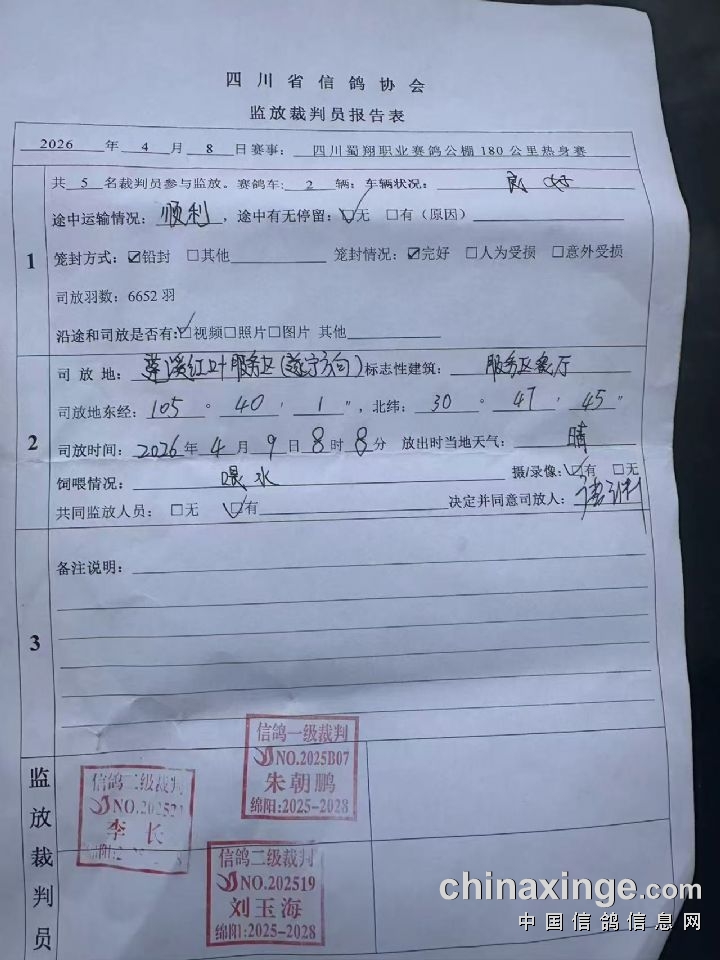 四川省信鸽协会
监放裁判员报告表
2026 年 4 月 8 日 赛事: 四川蜀翔职业赛鸽公棚 180 公里热身赛
1
共 5 名裁判员参与监放。赛鸽车: 2 辆; 车辆状况: 良好
途中运输情况: 顺利, 途中有无停留: ☑无 □有(原因)
笼封方式: ☑铅封 □其他 笼封情况: ☑完好 □人为受损 □意外受损
司放羽数: 6652 羽
沿途和司放是否有: ☑视频□照片□图片 其他
2
司 放 地: 蓬溪红叶服务区(遂宁方向) 标志性建筑: 服务区餐厅
司放地东经: 105 ° 40 ′ 1 ″, 北纬: 30 ° 47 ′ 45 ″
司放时间: 2026 年 4 月 9 日 8 时 8 分 放出时当地天气: 晴
饲喂情况: 喂水 摄/录像: ☑有 □无
共同监放人员: □无 ☑有 决定并同意司放人:
3
备注说明:
监放裁判员
信鸽一级裁判
NO.2025B07
朱朝鹏
绵阳:2025-2028
信鸽二级裁判
李长
信鸽二级裁判
NO.202519
刘玉海
绵阳:2025-2028
chinaxinge.com
中国信鸽信息网